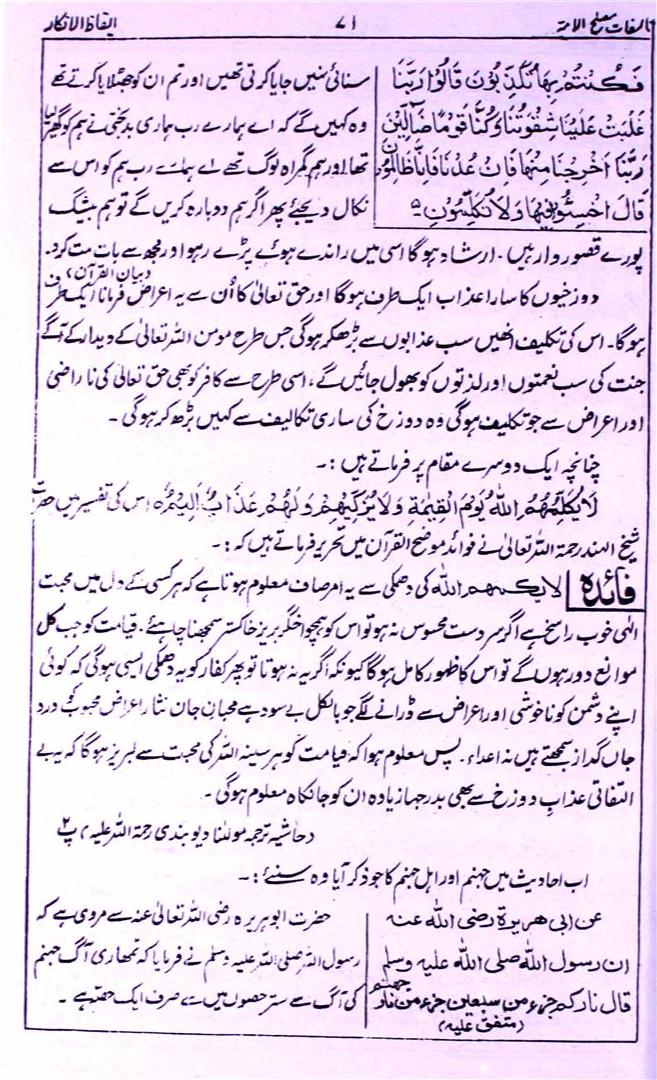 تالیفات مصلح الامۃ ۷۱ ایقاظ الافکار
فَكُنْتُمْ بِهَا تُكَذِّبُونَ قَالُوا رَبَّنَا
غَلَبَتْ عَلَيْنَا شِقْوَتُنَا وَكُنَّا قَوْمًا ضَآلِّيْنَ
رَبَّنَا اَخْرِجْنَا مِنْهَا فَاِنْ عُدْنَا فَاِنَّا ظَالِمُوْنَ
قَالَ اخْسَئُوْا فِيْهَا وَلَا تُكَلِّمُوْنِ ۝
سنائی نہیں جایا کرتی تھیں اور تم ان کو جھٹلایا کرتے تھے
وہ کہیں گے کہ اے ہمارے رب ہماری بدبختی نے ہم کو گھیر لیا
تھا اور ہم گمراہ لوگ تھے اے ہمارے رب ہم کو اس سے
نکال دیجئے پھر اگر ہم دوبارہ کریں گے تو ہم بیشک
پورے قصور وار ہیں۔ ارشاد ہوگا اسی میں راندے ہوئے پڑے رہو اور مجھ سے بات مت کرو۔
(بیان القرآن)
دوزخیوں کا سارا عذاب ایک طرف ہوگا اور حق تعالیٰ کا اُن سے یہ اعراض فرمانا ایک طرف
ہوگا۔ اس کی تکلیف انھیں سب عذابوں سے بڑھکر ہوگی جس طرح مومن اللہ تعالیٰ کے دیدار کے آگے
جنت کی سب نعمتوں اور لذتوں کو بھول جائیں گے، اسی طرح سے کافر کو بھی حق تعالیٰ کی ناراضی
اور اعراض سے جو تکلیف ہوگی وہ دوزخ کی ساری تکالیف سے کہیں بڑھ کر ہوگی۔
چنانچہ ایک دوسرے مقام پر فرماتے ہیں :۔
لَا يُكَلِّمُهُمُ اللّٰهُ يَوْمَ الْقِيٰمَةِ وَلَا يُزَكِّيْهِمْ وَلَهُمْ عَذَابٌ اَلِيْمٌ ہ اس کی تفسیر میں حضرت
شیخ الہند رحمۃ اللہ تعالیٰ نے فوائد موضح القرآن میں تحریر فرماتے ہیں کہ :۔
فائدہ لا یکلمھم اللہ کی دھمکی سے یہ امر صاف معلوم ہوتا ہے کہ ہر کسی کے دل میں محبت
الٰہی خوب راسخ ہے اگر سردست محسوس نہ ہو تو اس کو ہمچو اخگر زیر خاکستر سمجھنا چاہئے، قیامت کو جب کل
موانع دور ہوں گے تو اس کا ظہور کامل ہوگا کیونکہ اگر یہ نہ ہوتا تو پھر کفار کو یہ دھمکی ایسی ہوگی کہ کوئی
اپنے دشمن کو ناخوشی اور اعراض سے ڈرانے لگے جو بالکل بے سود ہے محبان جاں نثار اعراض محبوب کو درد
جاں گداز سمجھتے ہیں نہ اعداء۔ پس معلوم ہوا کہ قیامت کو ہر سینہ اللہ کی محبت سے لبریز ہوگا کہ یہ بے
التفاتی عذاب دوزخ سے بھی بدرجہا زیادہ ان کو جانکاہ معلوم ہوگی۔
(حاشیہ ترجمہ مولٰنا دیوبندی رحمۃ اللہ علیہ)
اب احادیث میں جہنم اور اہل جہنم کا جو ذکر آیا وہ سنئے :۔
عن ابی ھریرۃ رضی اللہ عنہ
ان رسول اللہ صلی اللہ علیہ وسلم
قال نارکم جزء من سبعین جزء من نار جھنم
(متفق علیہ)
حضرت ابوہریرہ رضی اللہ تعالیٰ عنہ سے مروی ہے کہ
رسول اللہ صلی اللہ علیہ وسلم نے فرمایا کہ تمھاری آگ جہنم
کی آگ سے ستر حصوں میں سے صرف ایک حصہ ہے۔